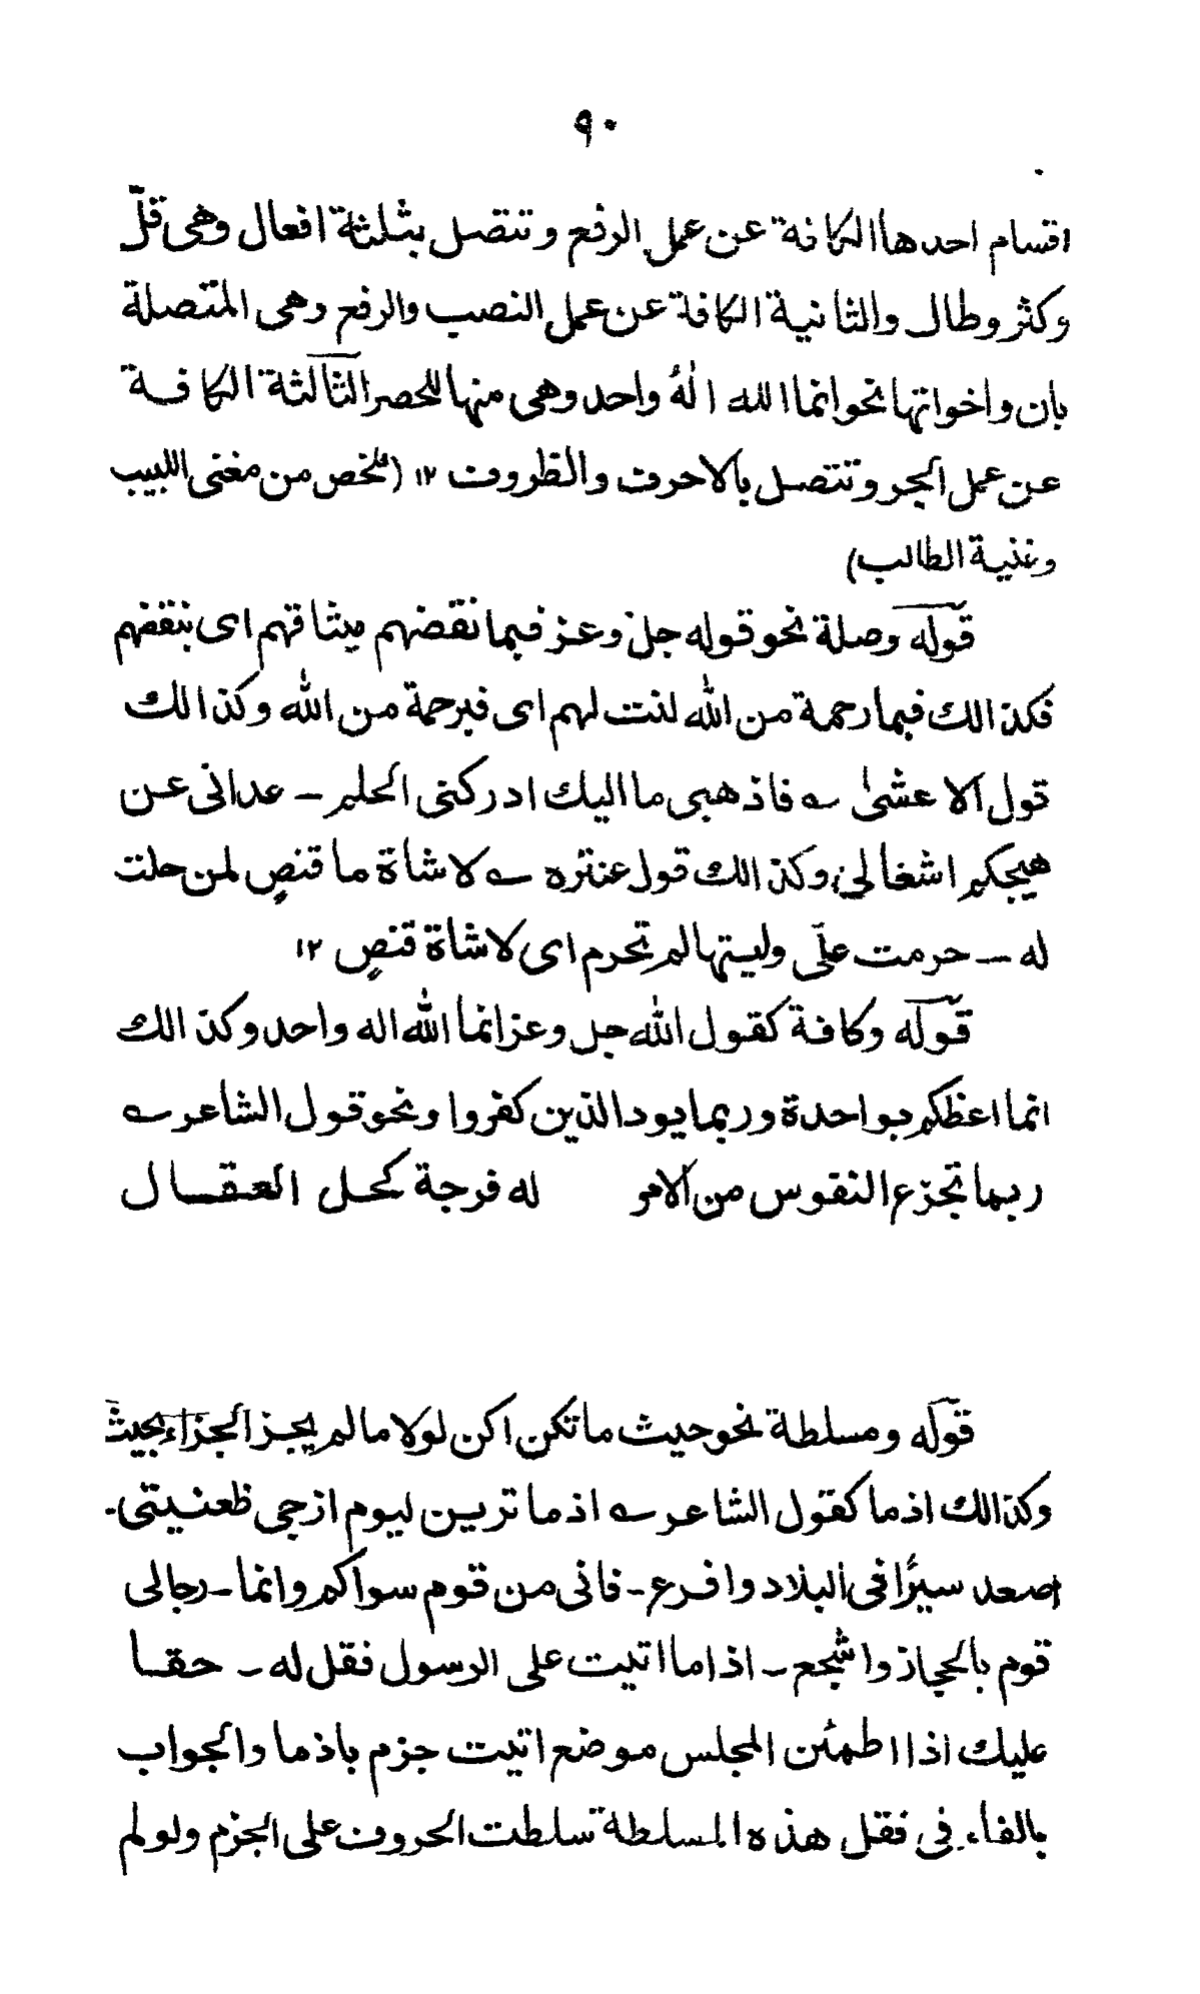 ٩٠
اقسام احدها الكافة عن عمل الرفع وتتصل بثلثة افعال وهى قلّ
وكثر وطال والثانية الكافة عن عمل النصب والرفع وهى المتصلة
بان واخواتها نحو انما الله الٰهٌ واحد وهى منها للحصر الثالثة الكافة
عن عمل الجر وتتصل بالاحرف والظروف ١٢ (ملخص من مغنى اللبيب
وغنية الطالب)
قوله وصلة نحو قوله جل وعز فبما نقضهم ميثاقهم اى بنقضهم
فكذالك فبما رحمة من الله لنت لهم اى فبرحمة من الله وكذالك
قول الاعشىٰ ؎ فاذهبى ما اليك ادركنى الحلم – عدانى عن
هيجكم اشغالى وكذالك قول عنتره ؎ لا شاة ما قنصٍ لمن حلت
له – حرمت علّى وليتها لم تحرم اى لا شاة قنصٍ ١٢
قوله وكافة كقول الله جل وعز انما الله اله واحد وكذالك
انما اعظكم بواحدة وربما يود الذين كفروا ونحو قول الشاعر ؎
ربما تجزع النفوس من الامر له فرجة كحل العقال
قوله ومسلطة نحو حيث ما تكن اكن لولا ما لم يجز الجزاء بحيث
وكذالك اذما كقول الشاعر ؎ اذ ما ترين ليوم ازجى ظعنيتى -
اصعد سيرًا فى البلاد وافرع - فانى من قوم سواكم وانما - رجالى
قوم بالحجاز واشجع - اذاما اتيت على الرسول فقل له - حقا
عليك اذا اطمئن المجلس موضع اتيت جزم باذما والجواب
بالفاء فى فقل هذه المسلطة سلطت الحروف على الجزم ولولم